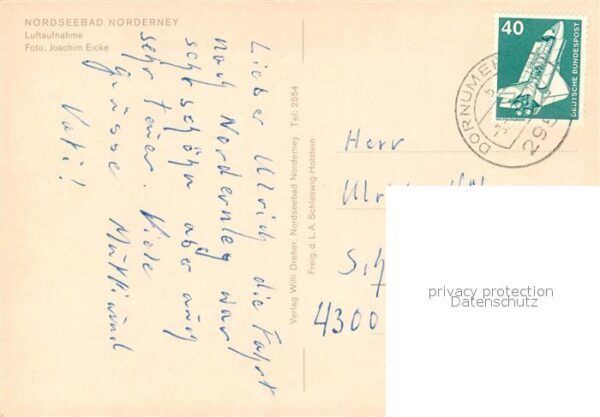 NORDSEEBAD NORDERNEY
Luftaufnahme
Foto: Joachim Eicke
Lieber Ulrich die Fahrt
nach Norderney war
sehr schön aber auch
sehr teuer. Viele
Grüsse Mutti und
Vati!
Verlag Willi Dreher, Nordseebad Norderney Tel: 2554
Freig. d. L.A. Schleswig-Holstein
40
DEUTSCHE BUNDESPOST
DORNUMER
298
Herr
Ulr
Sch
4300
privacy protection
Datenschutz